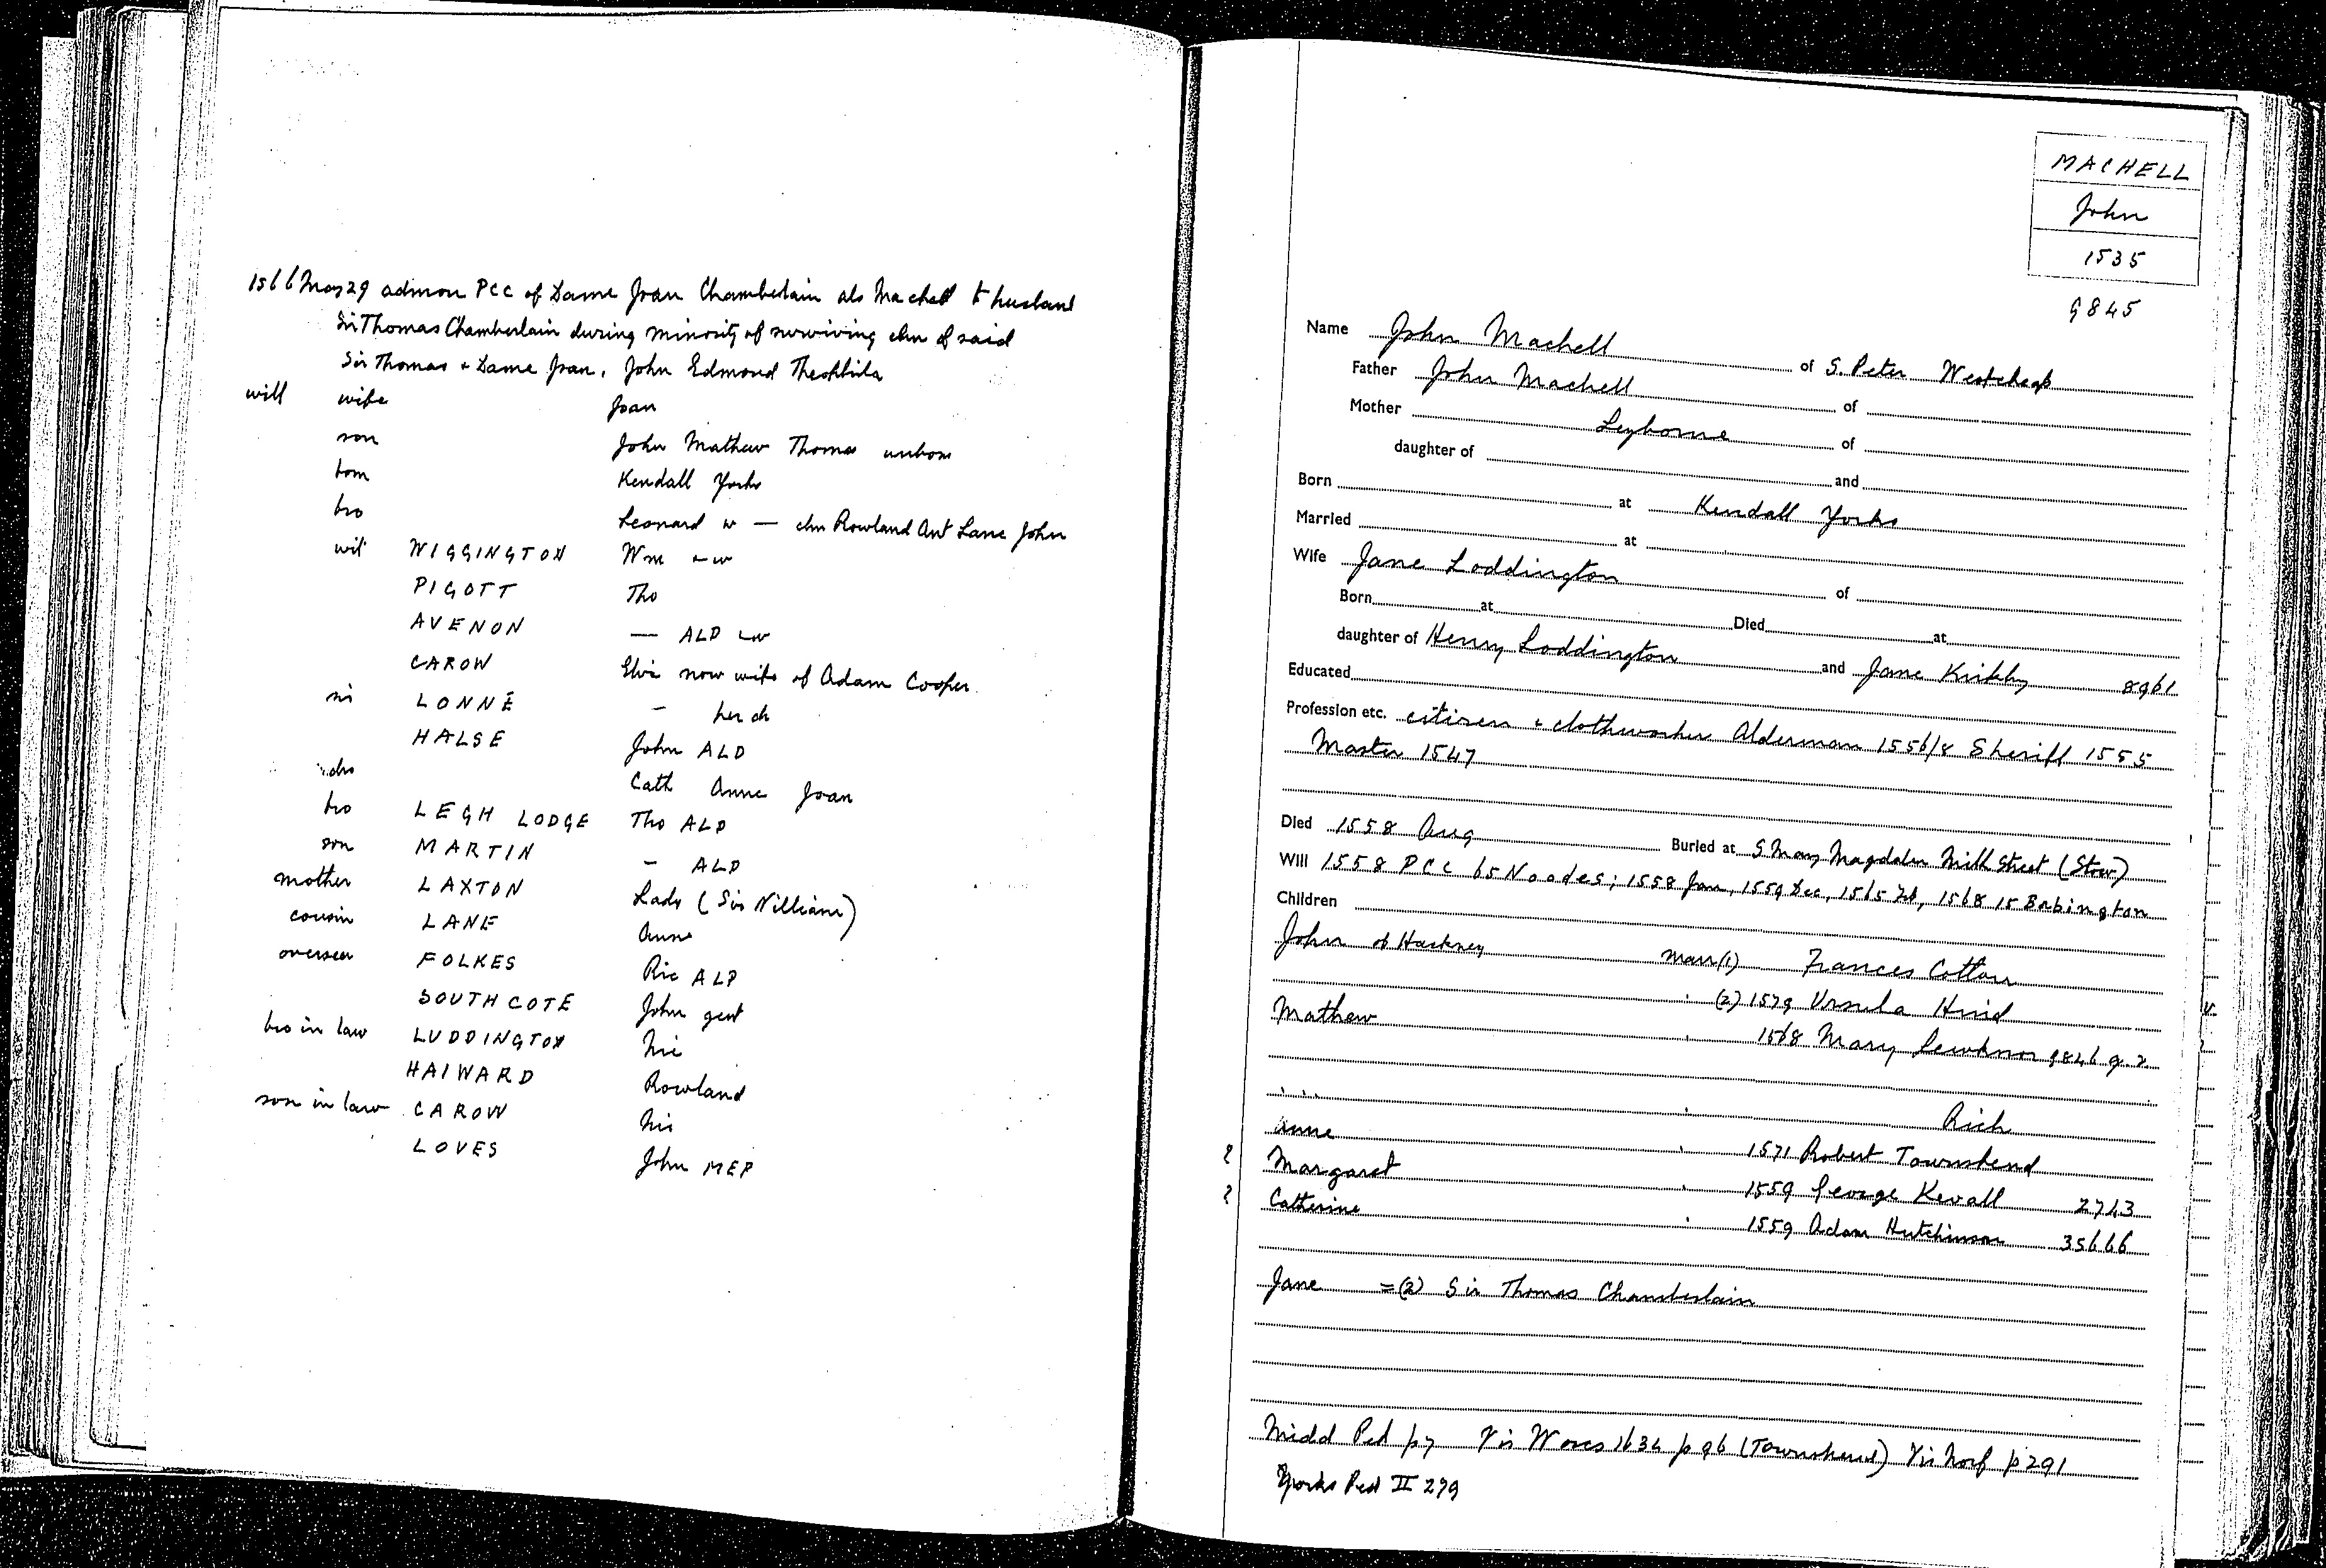 1566 May 29 admon PCC of Dame Joan Chamberlain als Machell to husband
Sir Thomas Chamberlain during minority of surviving chn of said
Sir Thomas + Dame Joan, John Edmond Theophila
will wife Joan
son John Mathew Thomas unborn
born Kendall Yorks
bro Leonard w — chn Rowland Ant Lane John
wit WIGGINGTON Wm + w
PIGOTT Tho
AVENON — ALD + w
CAROW Eliz now wife of Adam Cooper
sis LONNE – her ch
HALSE John ALD
das Cath Anne Joan
bro LEGH LODGE Tho ALD
son MARTIN – ALD
mother LAXTON Lady (Sir William)
cousin LANE Anne
overseer FOLKES Ric ALD
SOUTHCOTE John gent
bro in law LUDDINGTON Nic
HAIWARD Rowland
son in law CAROW Nic
LOVES John MEP
MACHELL
John
1535
9845
Name John Machell of S. Peter Westcheap
Father John Machell of
Mother Leyborne of
daughter of and
Born at Kendall Yorks
Married at
Wife Jane Loddington of
Born at Died at
daughter of Henry Loddington and Jane Kirkby 8961
Educated
Profession etc. citizen + clothworker Alderman 1556/8 Sheriff 1555
Master 1547
Died 1558 Aug Buried at S Mary Magdalen Milk Street (Stow)
Will 1558 PCC 65 Noodes; 1558 Jan, 1559 Dec, 1565 Feb, 1568 15 Babington
Children
John of Hackney marr (1) Frances Cotton
(2) 1579 Ursula Hind
Mathew 1568 Mary Lewknor 9846 q.v.
Rich
Anne 1571 Robert Townshend
? Margaret 1559 George Kevall 2713
? Catherine 1559 Adam Hutchinson 35666
Jane =(2) Sir Thomas Chamberlain
Midd Ped p7 Vis Worcs 1634 p 96 (Townshend) Vis Norf p 291
Yorks Ped II 279